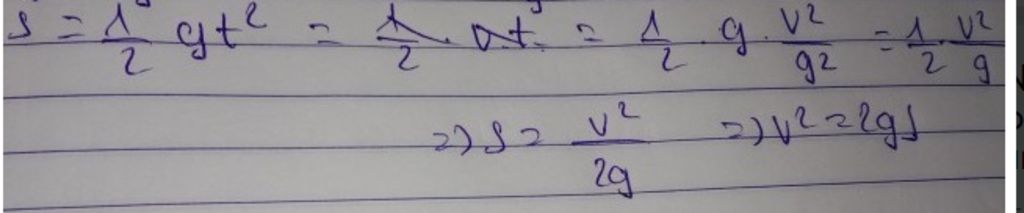 s = 1/2 gt² = 1/2 · vt = 1/2 · g · v²/g² = 1/2 · v²/g
=> s = v²/2g => v² = 2gs